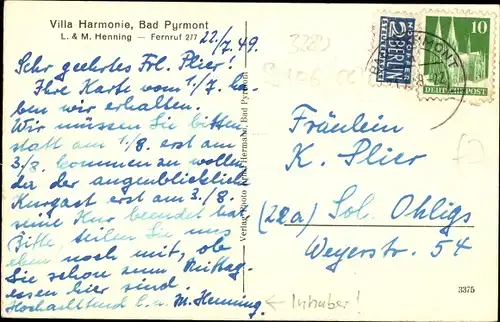 Villa Harmonie, Bad Pyrmont
L. & M. Henning — Fernruf 277
22/7.49.
Sehr geehrtes Frl. Plier!
Ihre Karte vom 1/7. ha-
ben wir erhalten.
Wir müssen Sie bitten
statt am 1/8. erst am
3/8. kommen zu wollen
da der augenblickliche
Kurgast erst am 3/8.
seine Kur beendet hat
Bitte teilen Sie uns
eben noch mit, ob
Sie schon zum Mittag-
essen hier sind.
Hochachtend L. u. M. Henning.
← Inhaber!
Bad Pyrmont
3289
NOTOPFER
2 BERLIN
STEUERMARKE
10
DEUTSCHE POST
PYRMONT
Fräulein
K. Plier
(22a) Sol. Ohligs
Weyerstr. 54
3375